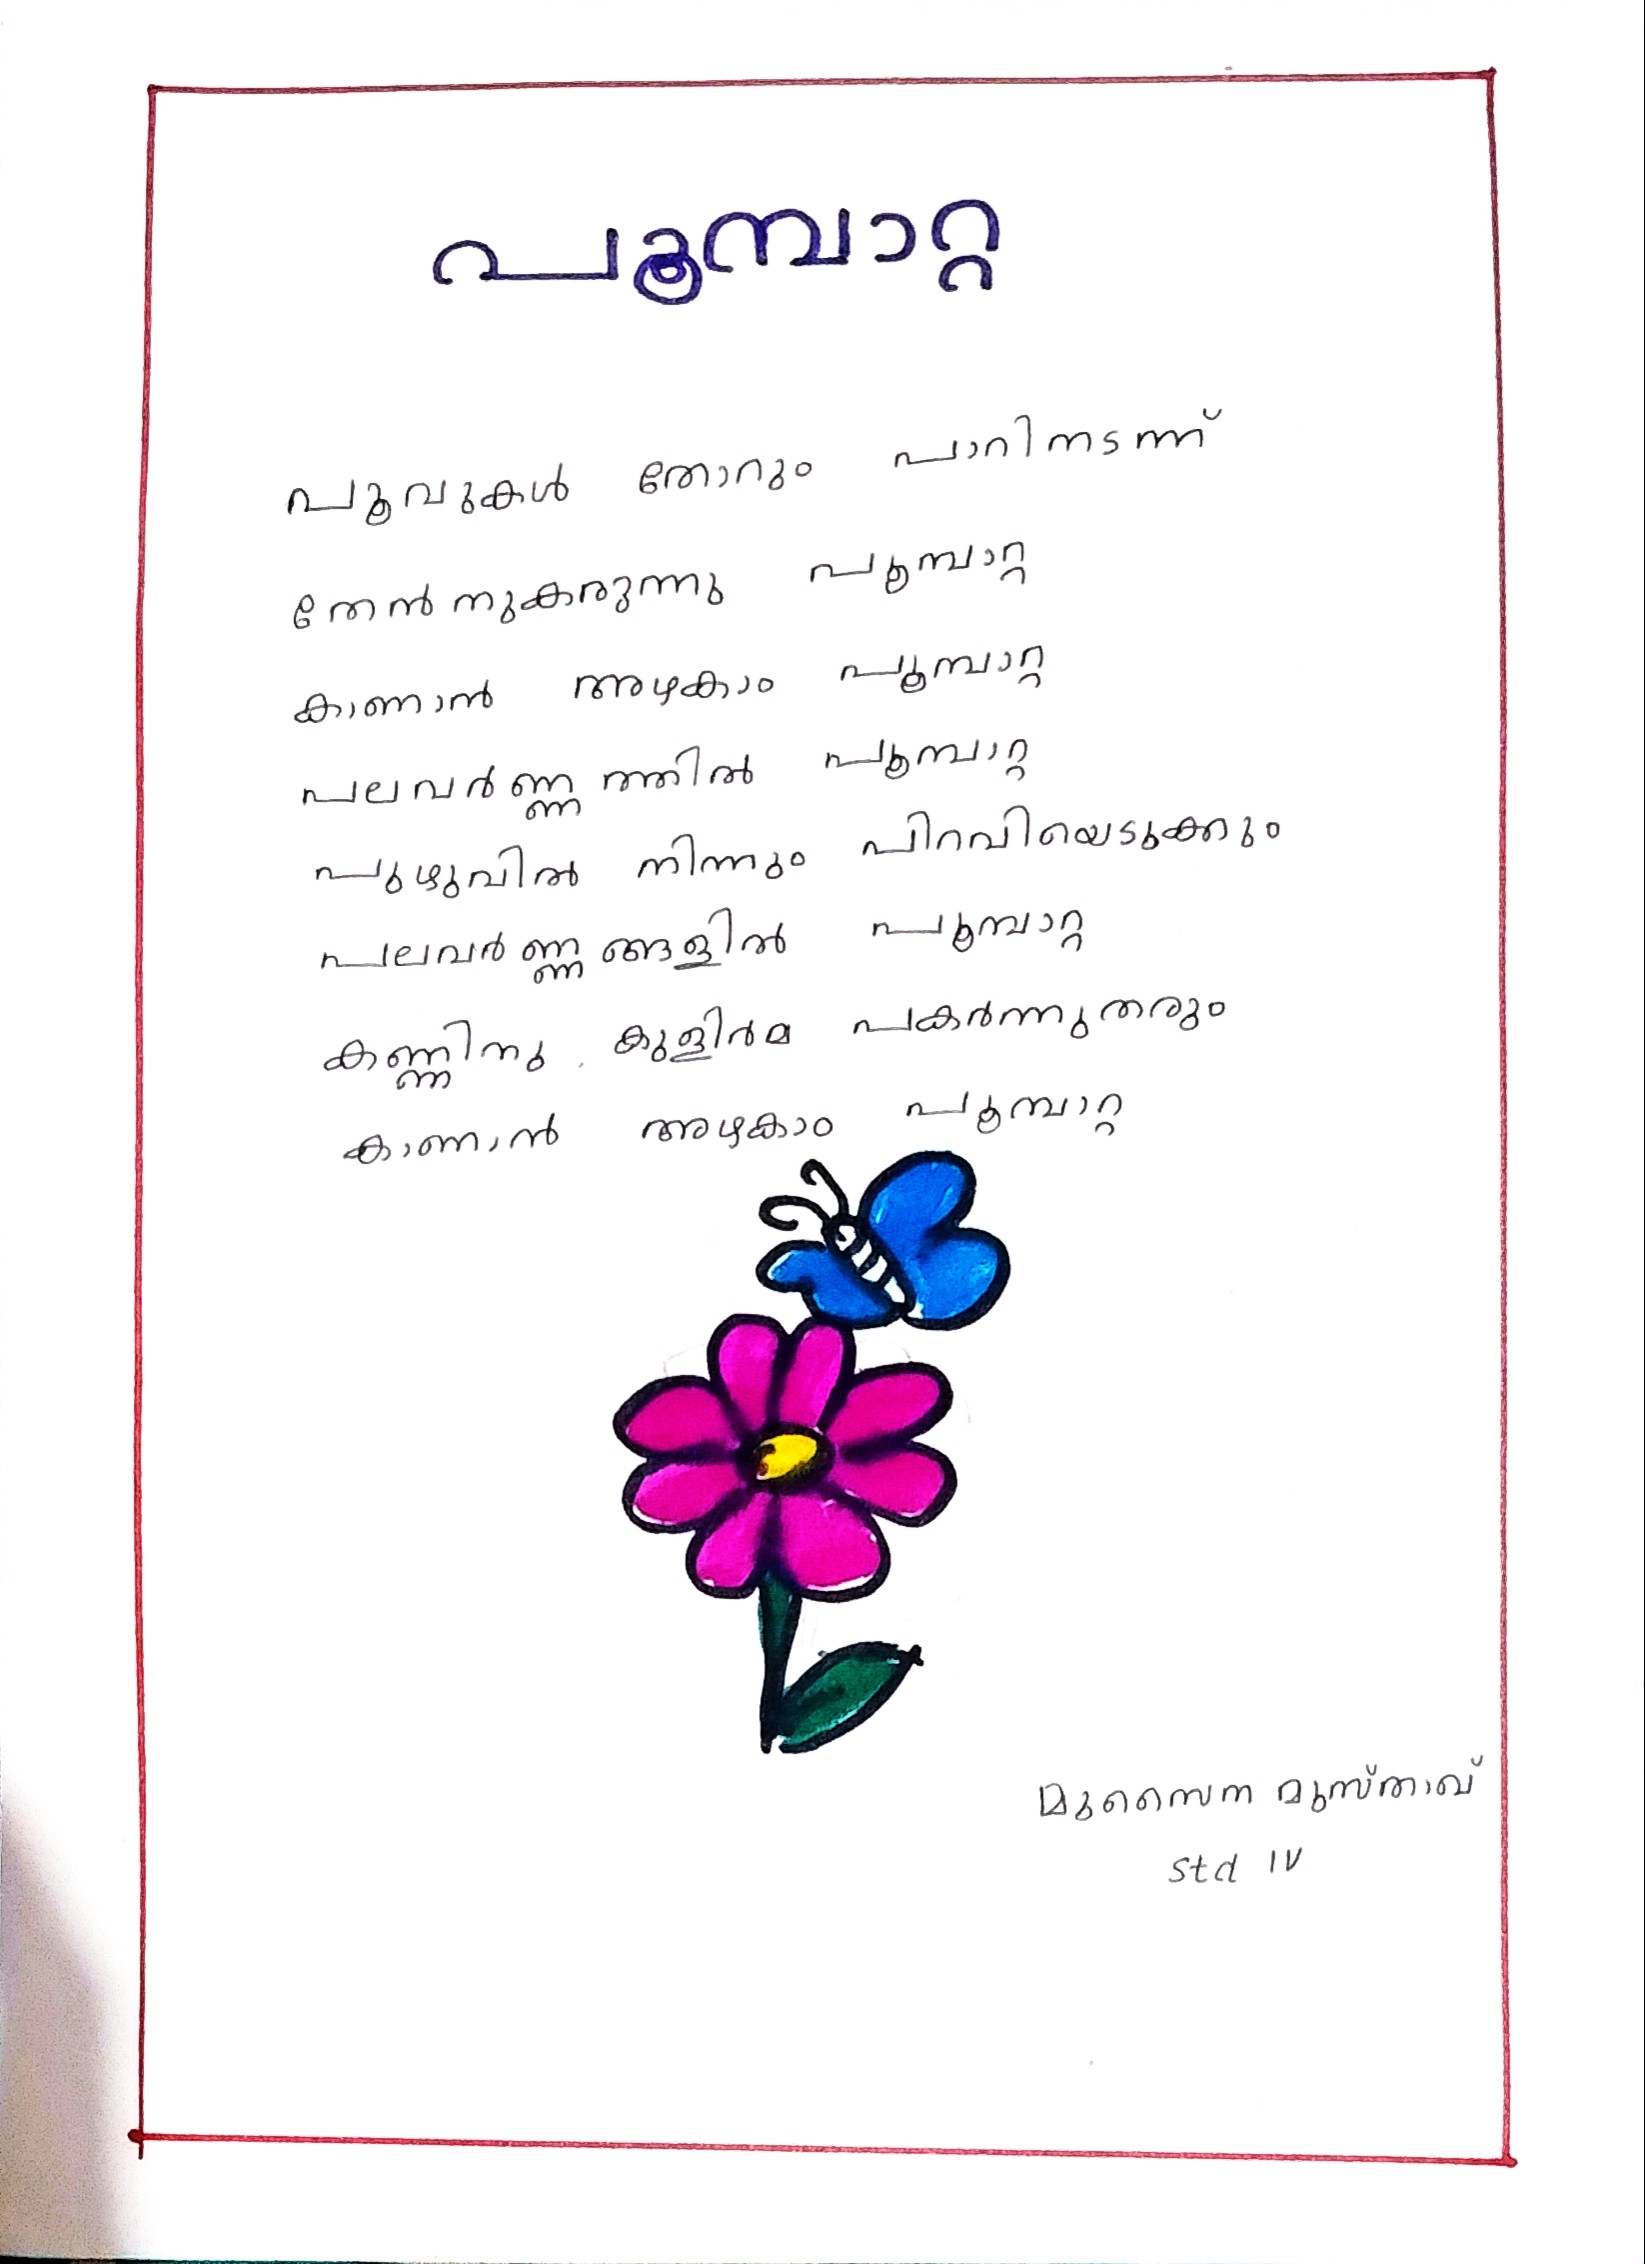 പൂമ്പാറ്റ
പൂവുകൾ തോറും പാറിനടന്ന്
തേൻ നുകരുന്നു പൂമ്പാറ്റ
കാണാൻ അഴകാം പൂമ്പാറ്റ
പലവർണ്ണത്തിൽ പൂമ്പാറ്റ
പുഴുവിൽ നിന്നും പിറവിയെടുക്കും
പലവർണ്ണങ്ങളിൽ പൂമ്പാറ്റ
കണ്ണിനു കുളിർമ പകർന്നുതരും
കാണാൻ അഴകാം പൂമ്പാറ്റ
മുസൈന മുസ്താഖ്
Std IV